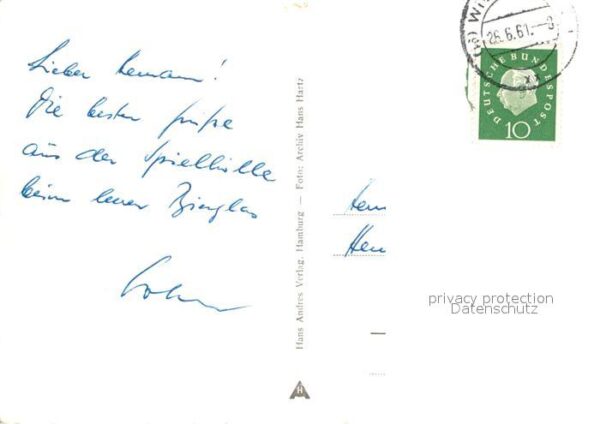 Lieber Hermann!
Die besten Grüße
aus der Spielhölle
beim leeren Bierglas
Hans Andres Verlag, Hamburg — Foto: Archiv Hans Hartz
H
26.6.61.
DEUTSCHE BUNDESPOST
10
Herrn
privacy protection
Datenschutz